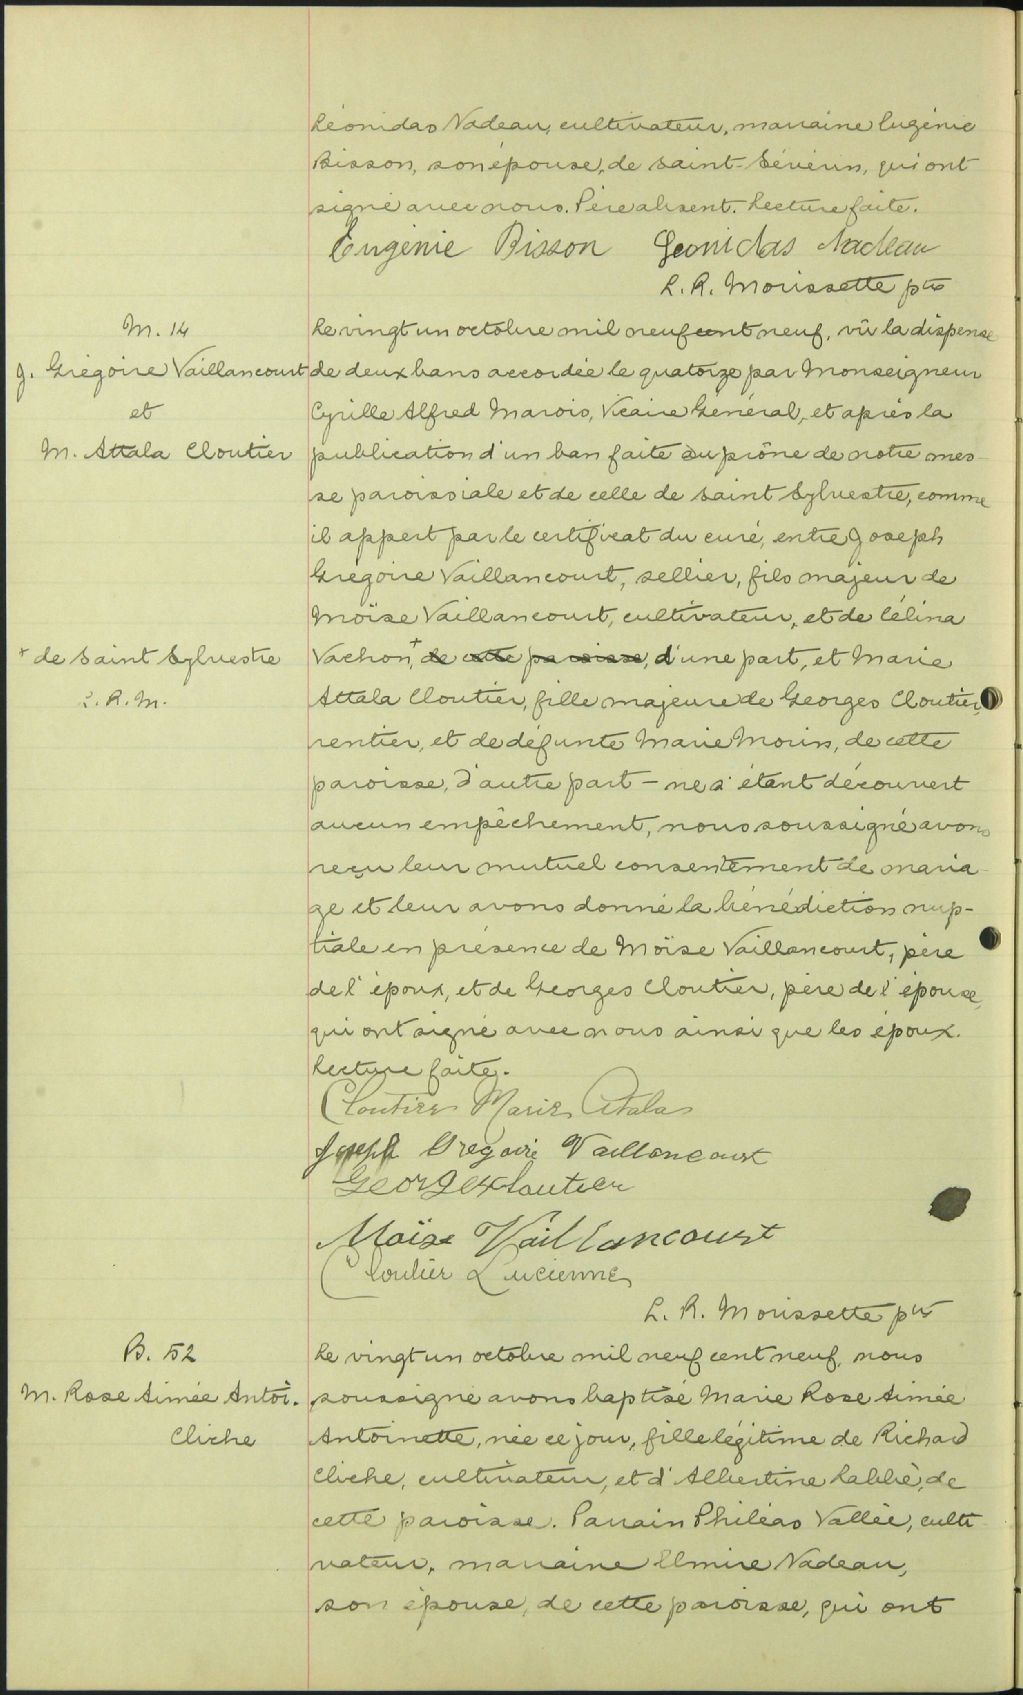 Léonidas Nadeau, cultivateur, marraine Eugénie
Bisson, son épouse, de Saint-Séverin, qui ont
signé avec nous. Père absent. Lecture faite.
Eugénie Bisson Leonidas Nadeau
L. R. Morissette ptre
M. 14
J. Grégoire Vaillancourt
et
M. Attala Cloutier
Le vingt un octobre mil neuf cent neuf, vû la dispense
de deux bans accordée le quatorze par Monseigneur
Cyrille Alfred Marois, Vicaire Général, et après la
publication d'un ban faite au prône de notre mes-
se paroissiale et de celle de Saint Sylvestre, comme
il appert par le certificat du curé, entre Joseph
Grégoire Vaillancourt, sellier, fils majeur de
Moïse Vaillancourt, cultivateur, et de Célina
+ de Saint Sylvestre
L. R. M.
Vachon,+ de cette paroisse, d'une part, et Marie
Attala Cloutier, fille majeure de Georges Cloutier,
rentier, et de défunte Marie Morin, de cette
paroisse, d'autre part - ne s'étant découvert
aucun empêchement, nous soussigné avons
reçu leur mutuel consentement de maria-
ge et leur avons donné la bénédiction nup-
tiale en présence de Moïse Vaillancourt, père
de l'époux, et de Georges Cloutier, père de l'épouse,
qui ont signé avec nous ainsi que les époux.
Lecture faite.
Cloutier Marie Atala
Joseph Gregoire Vaillancourt
Georges Cloutier
Moïse Vaillancourt
Cloutier Lucienne
L. R. Morissette ptre
B. 52
M. Rose Aimée Antoi.
Cliche
Le vingt un octobre mil neuf cent neuf, nous
soussigné avons baptisé Marie Rose Aimée
Antoinette, née ce jour, fille légitime de Richard
Cliche, cultivateur, et d'Albertine Labbé, de
cette paroisse. Parrain Philéas Vallée, culti-
vateur, marraine Elmire Nadeau,
son épouse, de cette paroisse, qui ont